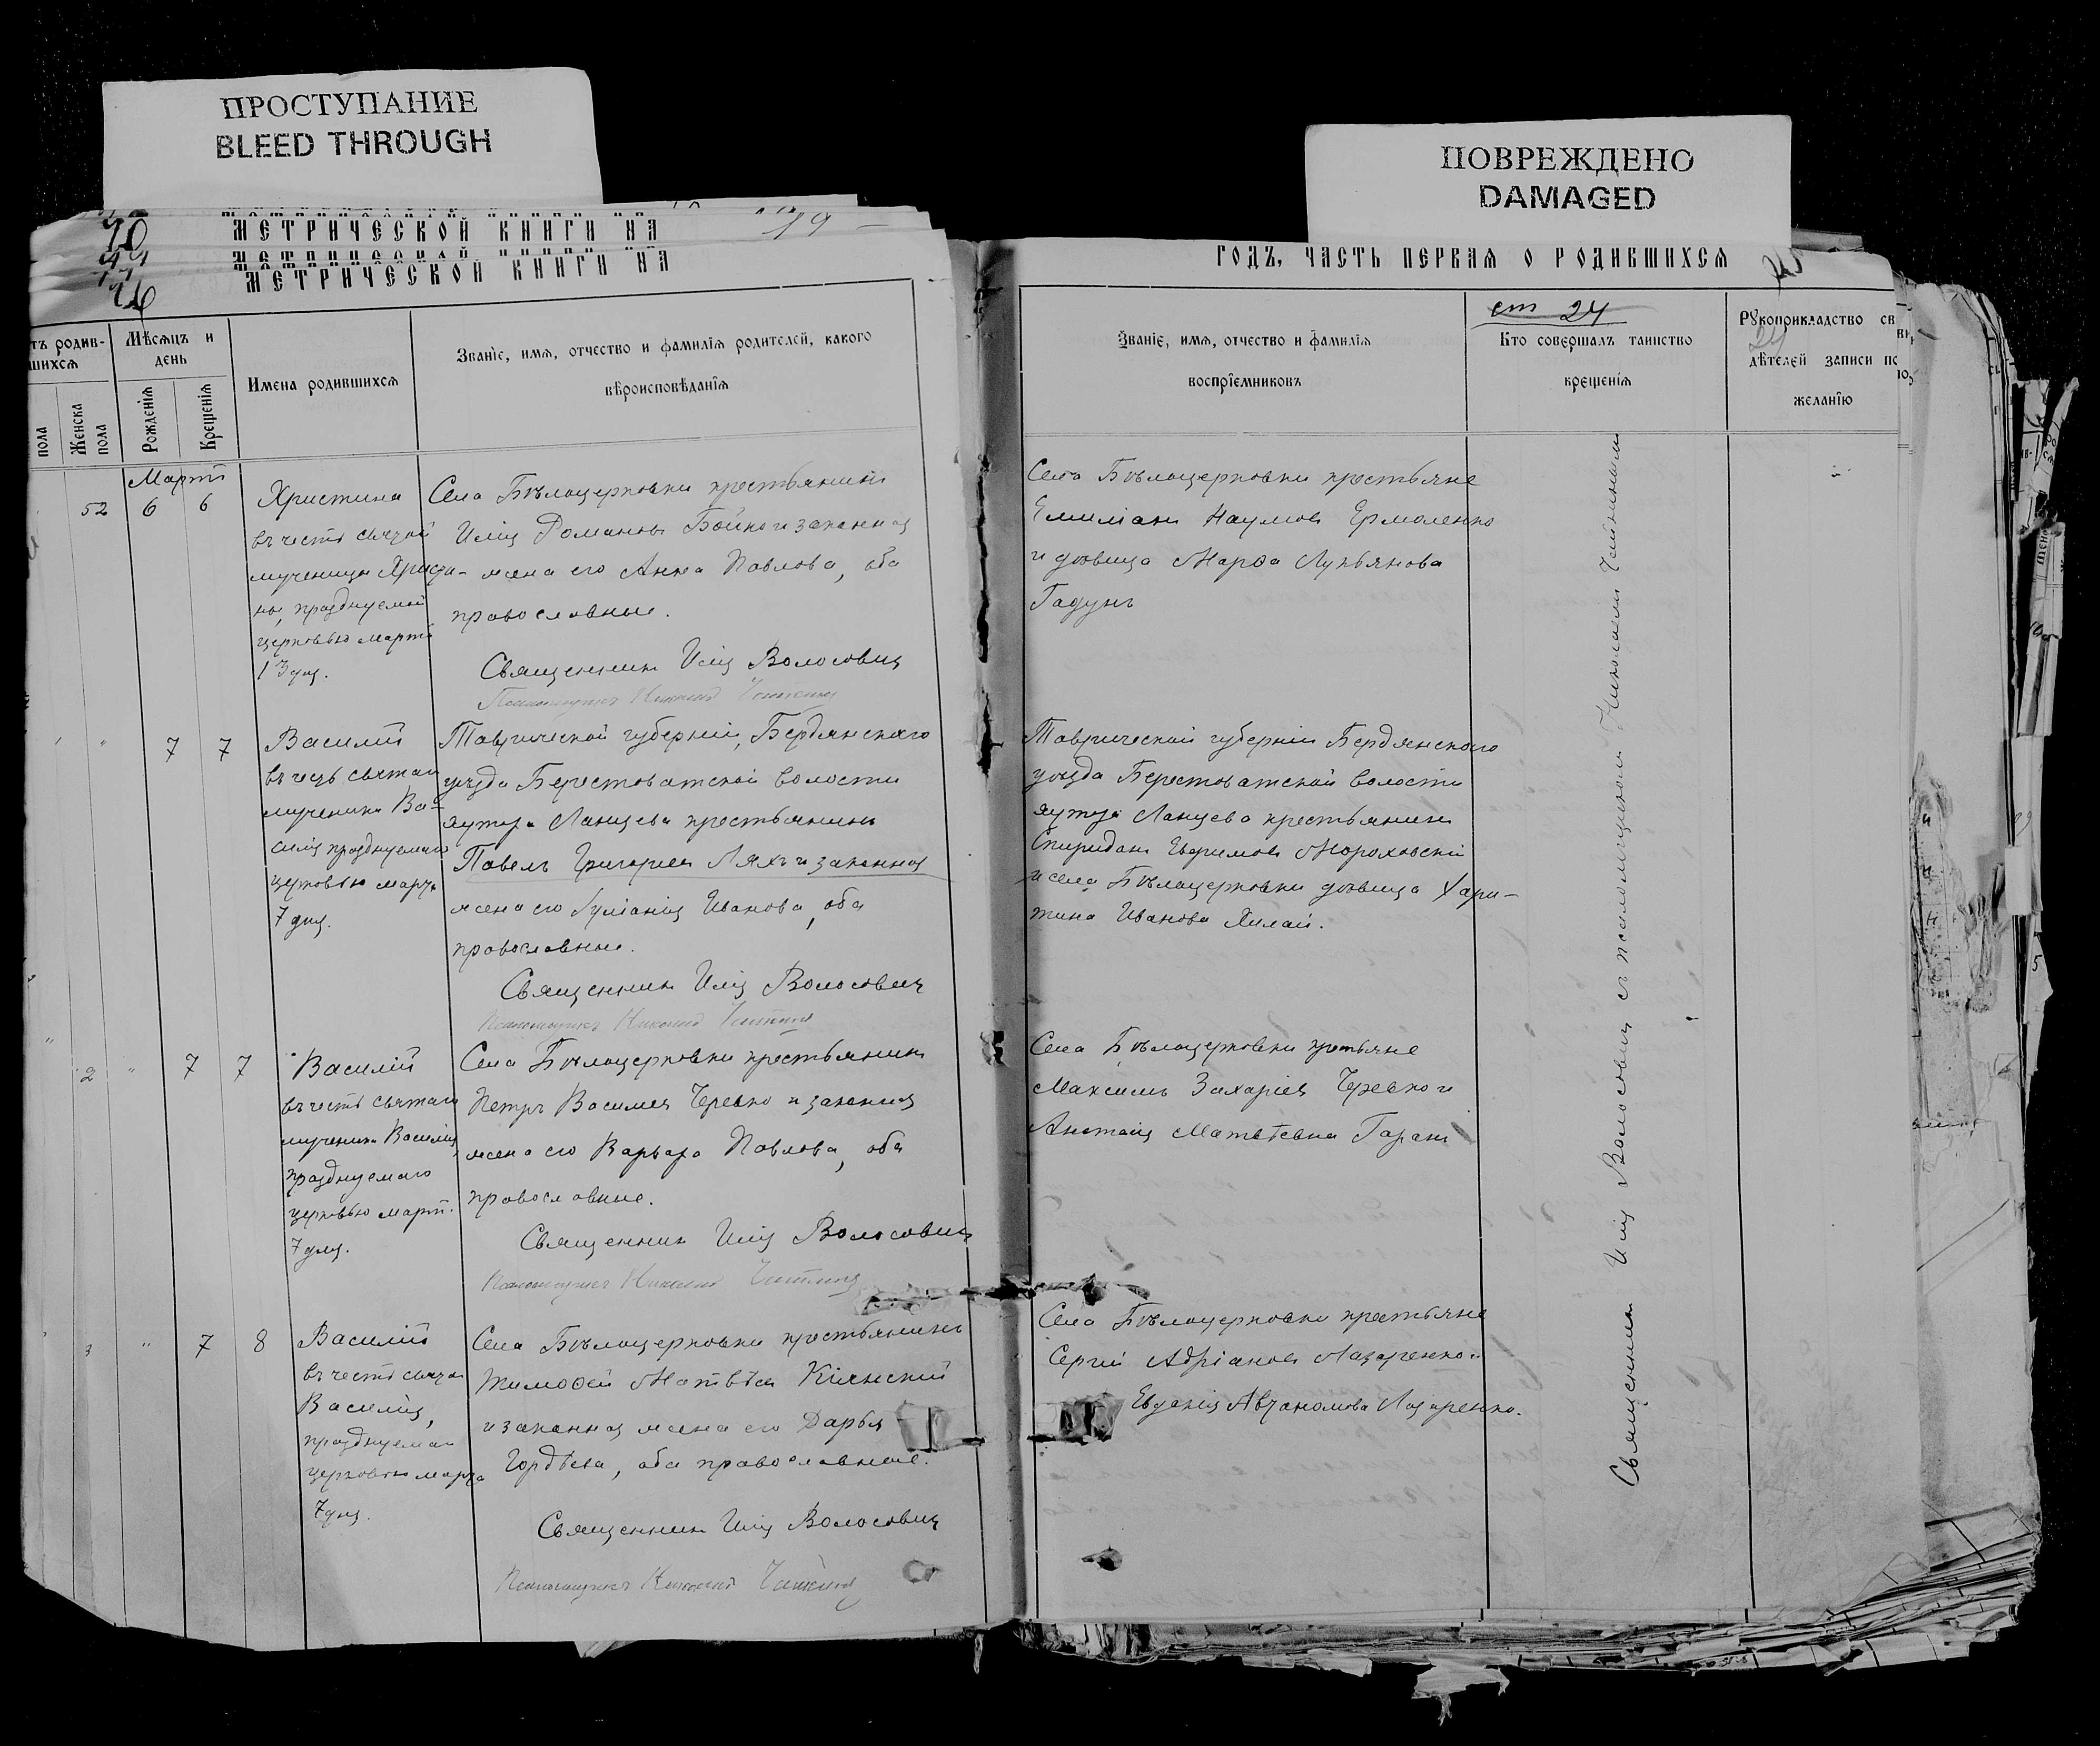 ПРОСТУПАНИЕ
BLEED THROUGH
ПОВРЕЖДЕНО
DAMAGED
МЕТРИЧЕСКОЙ КНИГИ НА
19
МЕТРИЧЕСКОЙ КНИГИ НА
МЕТРИЧЕСКОЙ КНИГИ НА
ГОДЪ, ЧАСТЬ ПЕРВАЯ О РОДИВШИХСЯ
тъ родив-
шихся
пола
Женска пола
Мѣсяцъ и
день
Рожденія
Крещенія
Имена родившихся
Званіе, имя, отчество и фамилія родителей, какого
вѣроисповѣданія
Званіе, имя, отчество и фамилія
воспріемниковъ
ст 24
Кто совершалъ таинство
крещенія
Рукоприкладство св
дѣтелей записи по
желанію
Мартъ
52 6 6
Христина
въ честь святой
мученицы Христи-
ны, празднуемой
церковью марта
13 дня.
Села Бѣлоцерковки крестьянинъ
Илія Романовъ Бойко и законная
жена его Анна Павлова, оба
православные.
Священникъ Илія Волосовичъ
Псаломщикъ Николай
Села Бѣлоцерковки крестьяне
Емиліанъ Наумовъ Ермоленко
и дѣвица Марѳа Лукьянова
Гадунъ
7 7
Василій
въ честь святаго
мученика Ва-
силія празднуемаго
церковью марта
7 дня.
Таврической губерніи, Бердянскаго
уѣзда Берестоватской волости
хутора Ланцева крестьянинъ
Павелъ Григорьев Ляхъ и законная
жена его Іуліанія Иванова, оба
православные.
Священникъ Илія Волосовичъ
Псаломщикъ Николай
Таврической губерніи Бердянскаго
уѣзда Берестоватской волости
хутора Ланцева крестьянинъ
Спиридонъ Ефимовъ Мороховскій
и села Бѣлоцерковки дѣвица Хари-
тина Иванова
2 7 7
Василій
въ честь святаго
мученика Василія,
празднуемаго
церковью март.
7 дня.
Села Бѣлоцерковки крестьянинъ
Петръ Васильев Черевко и законная
жена его Варвара Павлова, оба
православные.
Священникъ Илія Волосовичъ
Псаломщикъ Николай
Села Бѣлоцерковки крестьяне
Максимъ Захаріев Черевко и
Анстасія Матвѣевна Гаранъ
3 7 8
Василій
въ честь святаго
Василія,
празднуемаго
церковью марта
7 дня.
Села Бѣлоцерковки крестьянинъ
Тимоѳей Матвѣев Кіянскій
и законная жена его Дарья
Гордѣева, оба православные.
Священникъ Илія Волосовичъ
Псаломщикъ Николай
Села Бѣлоцерковки крестьяне
Сергій Адріановъ Лазаренко и
Евдокія Автаномова Лазаренко.
Священникъ Илія Волосовичъ съ псаломщикомъ Николаемъ